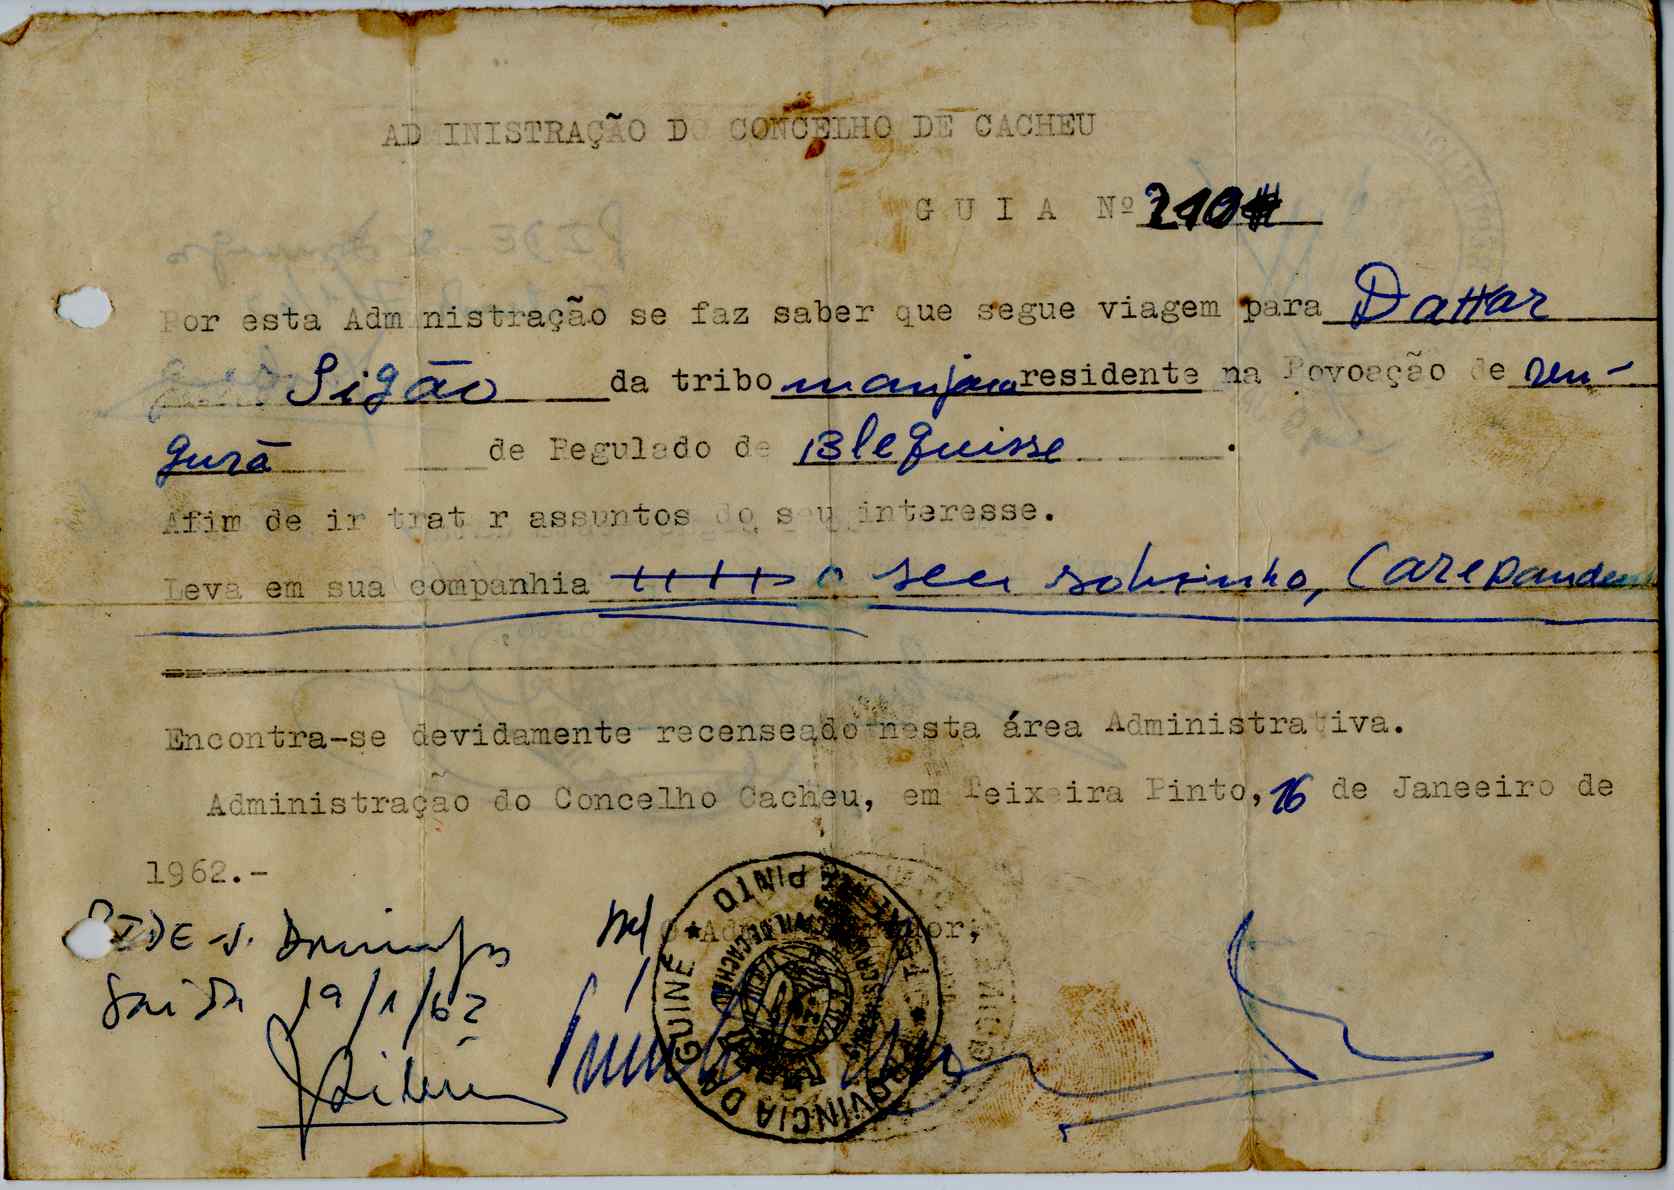 ADMINISTRAÇÃO DO CONCELHO DE CACHEU
GUIA Nº 210#
Por esta Administração se faz saber que segue viagem para Dakar
Sigão da tribo manjaca residente na Povoação de ren-
gurã de Regulado de Blequisse.
Afim de ir tratar assuntos do seu interesse.
Leva em sua companhia o seu sobrinho,
Encontra-se devidamente recenseado nesta área Administrativa.
Administração do Concelho Cacheu, em Teixeira Pinto, 16 de Janeeiro de
1962.-
PIDE S. Domingos
O Administrador,
Saida 19/1/62
Ribeiro
PROVINCIA DA GUINÉ ★ PINTO